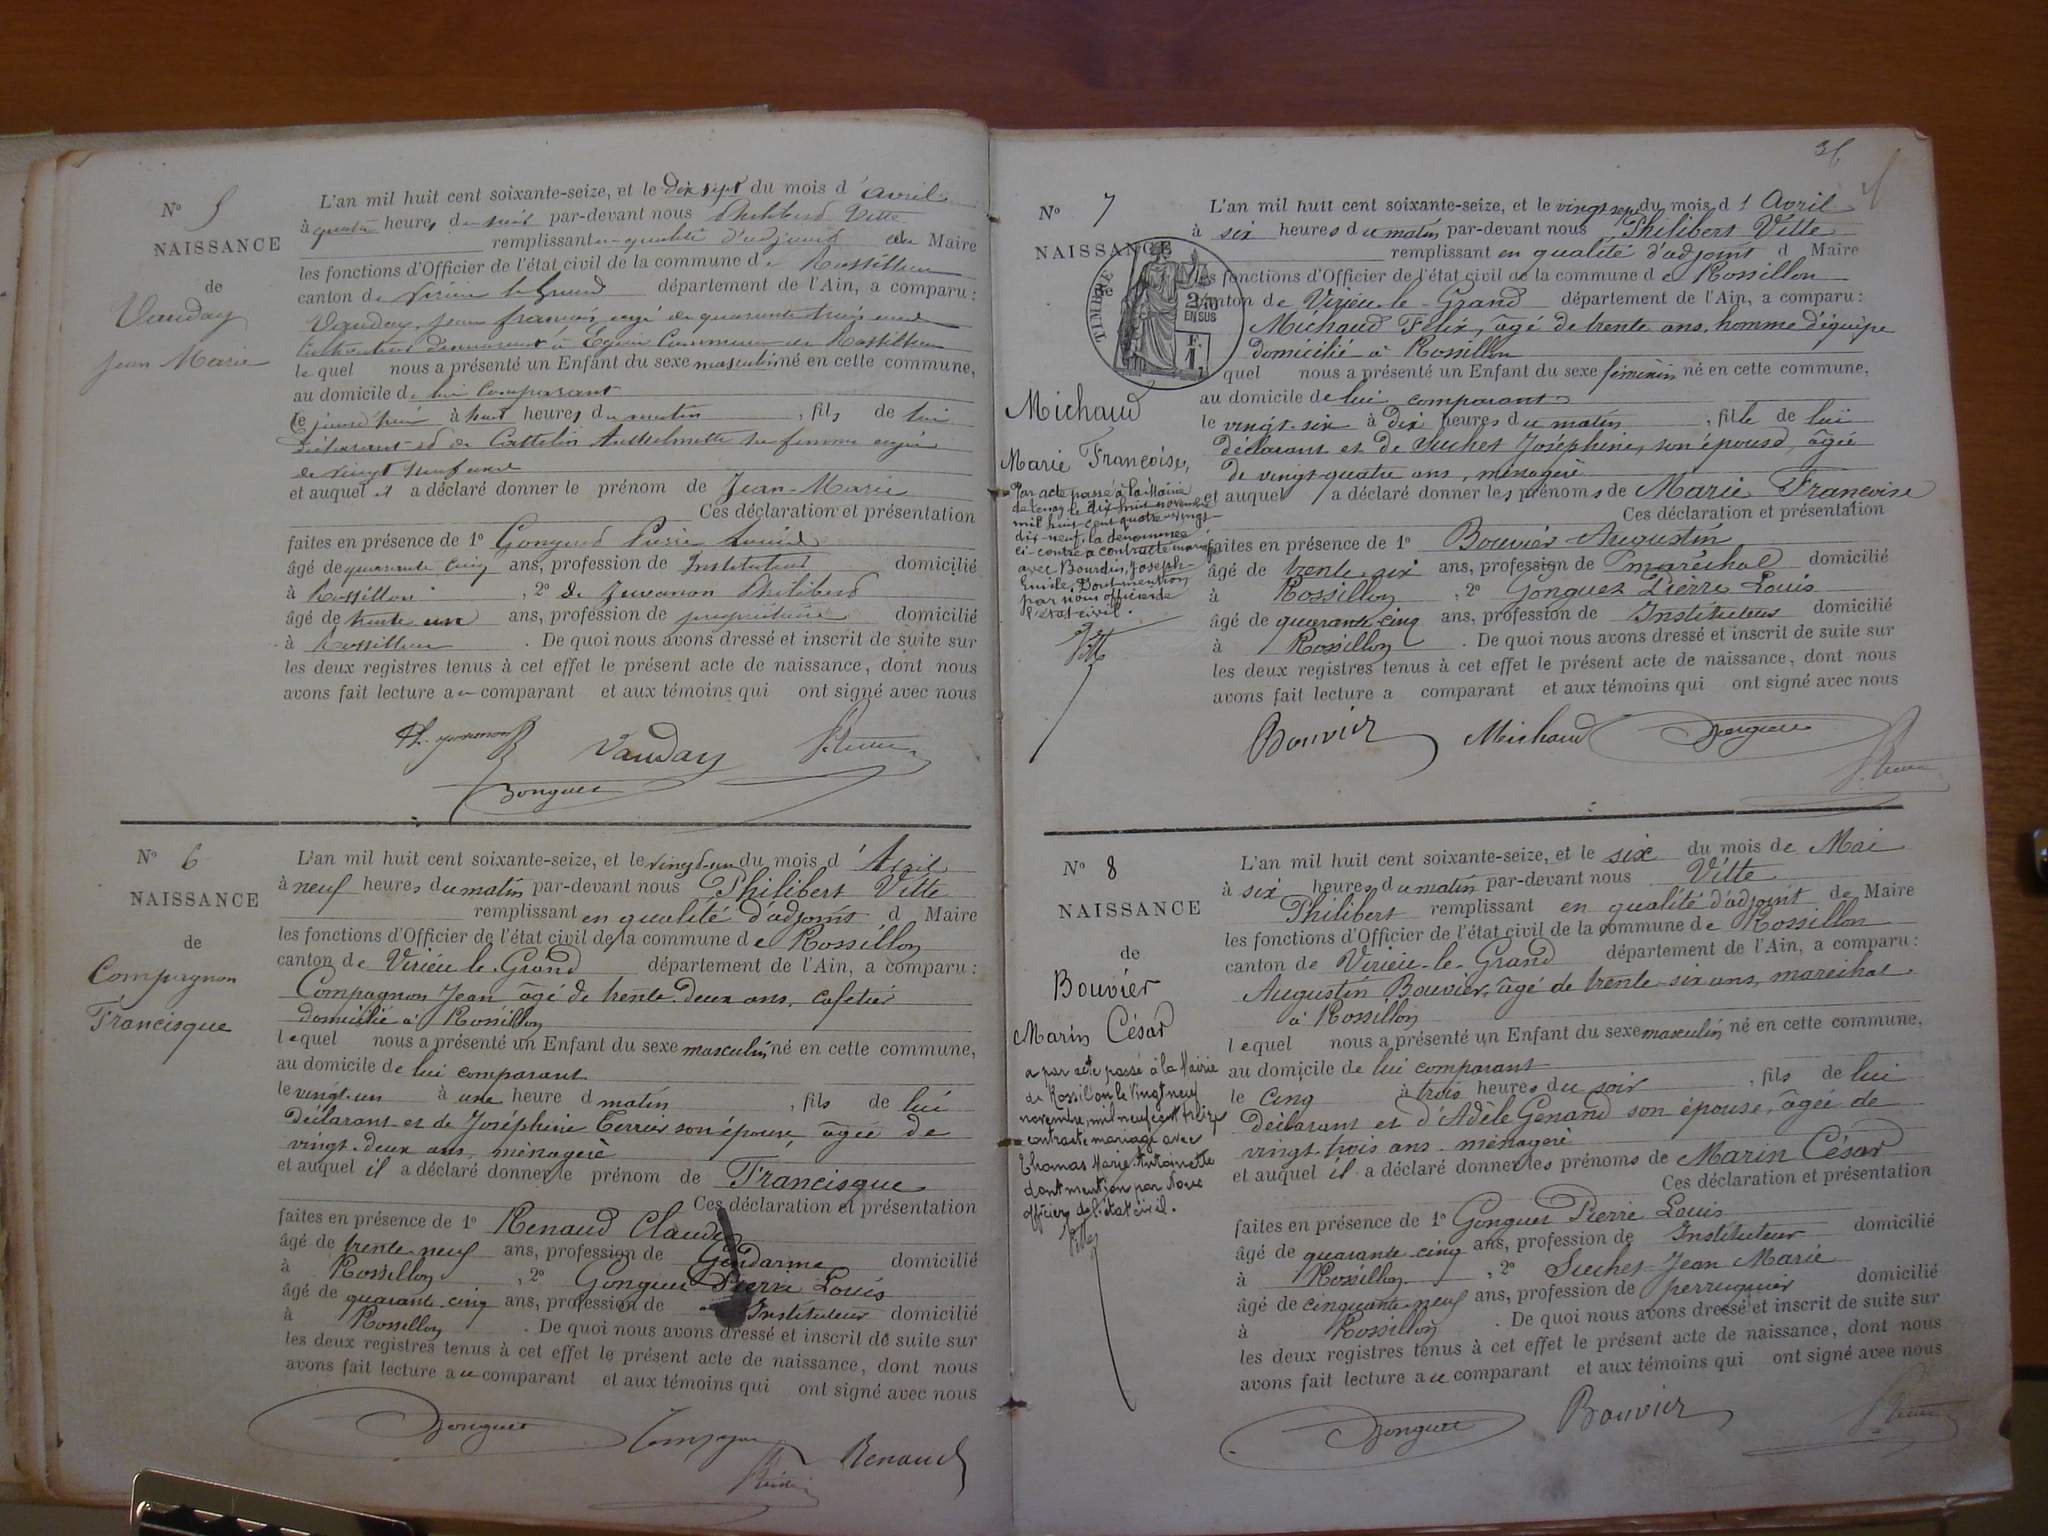 N° 5
NAISSANCE
de
Vauday
Jean Marie
L'an mil huit cent soixante-seize, et le dix sept du mois d'avril
à quatre heures du soir par-devant nous Philibert Vitte
remplissant en qualité d'adjoint au Maire
les fonctions d'Officier de l'état civil de la commune de Rossillon
canton de Virieu le Grand département de l'Ain, a comparu :
Vauday, Jean françois, âgé de quarante trois ans
cultivateur demeurant à Egieu Commune de Rossillon
le quel nous a présenté un Enfant du sexe masculin né en cette commune,
au domicile de lui comparant
le jourd'hui à huit heures du matin , fils de lui
déclarant et de Cattelin Anthelmette sa femme âgée
de vingt neuf ans
et auquel il a déclaré donner le prénom de Jean-Marie
Ces déclaration et présentation
faites en présence de 1° Gonguet Pierre Louis
âgé de quarante cinq ans, profession de Instituteur domicilié
à Rossillon , 2° de Juvanon Philibert
âgé de trente un ans, profession de propriétaire domicilié
à Rossillon . De quoi nous avons dressé et inscrit de suite sur
les deux registres tenus à cet effet le présent acte de naissance, dont nous
avons fait lecture au comparant et aux témoins qui ont signé avec nous
Ph. Juvanon Vauday P. Vitte
Gonguet
N° 6
NAISSANCE
de
Compagnon
Francisque
L'an mil huit cent soixante-seize, et le vingt-un du mois d'Avril
à neuf heures du matin par-devant nous Philibert Vitte
remplissant en qualité d'adjoint d Maire
les fonctions d'Officier de l'état civil de la commune de Rossillon
canton de Virieu le Grand département de l'Ain, a comparu :
Compagnon Jean âgé de trente-deux ans, cafetier
domicilié à Rossillon
lequel nous a présenté un Enfant du sexe masculin né en cette commune,
au domicile de lui comparant
le vingt-un à une heure d matin , fils de lui
déclarant et de Joséphine Terrier son épouse âgée de
vingt-deux ans, ménagère
et auquel il a déclaré donner le prénom de Francisque
Ces déclaration et présentation
faites en présence de 1° Renaud Claude
âgé de trente-neuf ans, profession de Gendarme domicilié
à Rossillon , 2° Gonguet Pierre Louis
âgé de quarante-cinq ans, profession de Instituteur domicilié
à Rossillon . De quoi nous avons dressé et inscrit de suite sur
les deux registres tenus à cet effet le présent acte de naissance, dont nous
avons fait lecture au comparant et aux témoins qui ont signé avec nous
Gonguet Compagnon Renaud
P. Vitte
36
N° 7
NAISSANCE
de
TIMBRE
2/10 EN SUS
1 F.
Michaud
Marie Françoise,
Par acte passé à la Mairie
de Tenay le dix-huit novembre
mil huit cent quatre-vingt-
dix-neuf, la dénommée
ci-contre a contracté mariage
avec Bourdin, Joseph-
Emile. Dont mention
par nous officier de
l'état civil.
Vitte
L'an mil huit cent soixante-seize, et le vingt-sept du mois d'Avril
à six heures du matin par-devant nous Philibert Vitte
remplissant en qualité d'adjoint d Maire
les fonctions d'Officier de l'état civil de la commune de Rossillon
canton de Virieu-le-Grand département de l'Ain, a comparu :
Michaud Félix, âgé de trente ans, homme d'équipe
domicilié à Rossillon
quel nous a présenté un Enfant du sexe féminin né en cette commune,
au domicile de lui comparant
le vingt-six à dix heures du matin , fille de lui
déclarant et de Suchet Joséphine, son épouse, âgée
de vingt-quatre ans, ménagère
et auquel a déclaré donner les prénoms de Marie Françoise
Ces déclaration et présentation
faites en présence de 1° Bouvier Augustin
âgé de trente-six ans, profession de maréchal domicilié
à Rossillon , 2° Gonguet Pierre Louis
âgé de quarante-cinq ans, profession de Instituteur domicilié
à Rossillon . De quoi nous avons dressé et inscrit de suite sur
les deux registres tenus à cet effet le présent acte de naissance, dont nous
avons fait lecture a comparant et aux témoins qui ont signé avec nous
Bouvier Michaud Gonguet
P. Vitte
N° 8
NAISSANCE
de
Bouvier
Marin César
a par acte passé à la Mairie
de Rossillon le Vingt neuf
novembre, mil neuf cent treize
contracté mariage avec
Thomas Marie Antoinette
dont mention par Nous
officier de l'état civil.
Vitte
L'an mil huit cent soixante-seize, et le six du mois de Mai
à six heures du matin par-devant nous Vitte
Philibert remplissant en qualité d'adjoint de Maire
les fonctions d'Officier de l'état civil de la commune de Rossillon
canton de Virieu-le-Grand département de l'Ain, a comparu :
Augustin Bouvier, âgé de trente-six ans, maréchal
à Rossillon
lequel nous a présenté un Enfant du sexe masculin né en cette commune,
au domicile de lui comparant
le cinq à trois heures du soir , fils de lui
déclarant et d'Adèle Genand son épouse, âgée de
vingt-trois ans ménagère
et auquel il a déclaré donner les prénoms de Marin César
Ces déclaration et présentation
faites en présence de 1° Gonguet Pierre Louis
âgé de quarante-cinq ans, profession de Instituteur domicilié
à Rossillon , 2° Suchet Jean Marie
âgé de cinquante-neuf ans, profession de perruquier domicilié
à Rossillon . De quoi nous avons dressé et inscrit de suite sur
les deux registres tenus à cet effet le présent acte de naissance, dont nous
avons fait lecture au comparant et aux témoins qui ont signé avec nous
Gonguet Bouvier P. Vitte